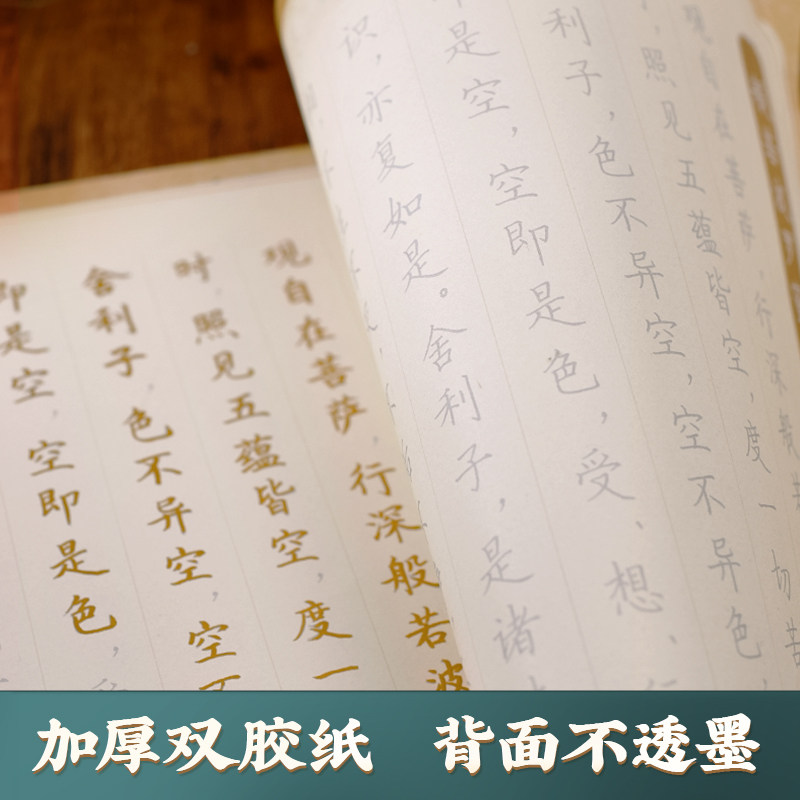 观自在菩萨，行深般若
，照见五蕴皆空，度一切苦
利子，色不异空，空不异色，
即是空，空即是色，受、想、行
识，亦复如是。舍利子，是诸
观自在菩萨，行深般若波
时，照见五蕴皆空，度一
舍利子，色不异空，空不
即是空，空即是色，受
加厚双胶纸 背面不透墨